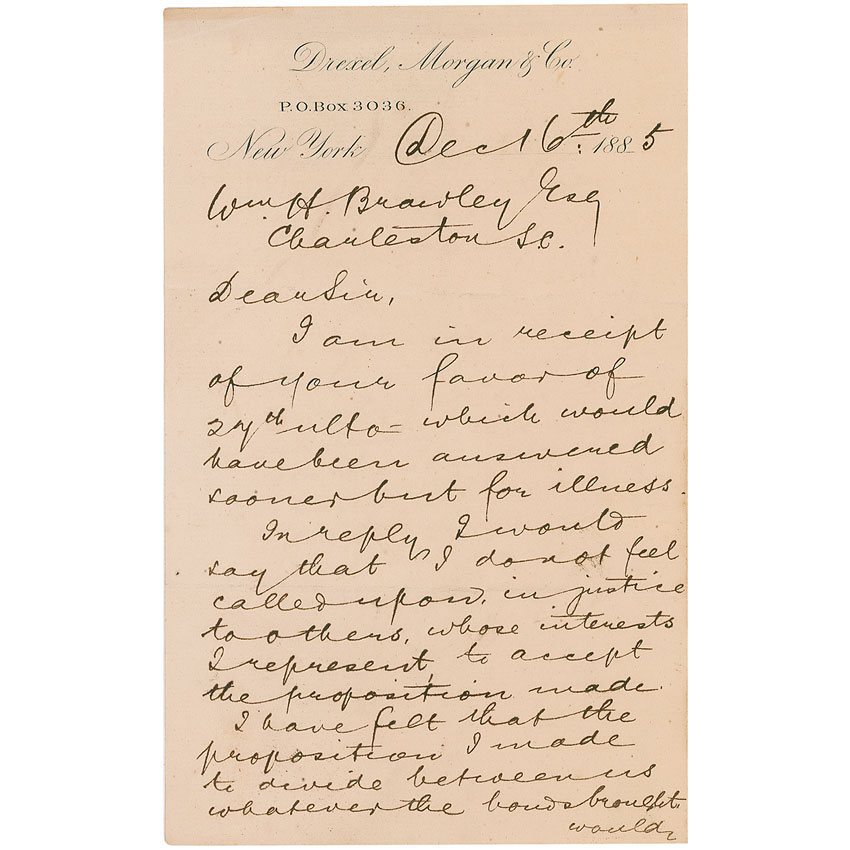 Drexel, Morgan & Co.
P.O. Box 3036.
New York Dec 16th. 1885
Wm. H. Brawley Esq
Charleston S.C.
Dear Sir,
I am in receipt
of your favor of
27th ulto - which would
have been answered
sooner but for illness
In reply I would
say that I do not feel
called upon, in justice
to others, whose interests
I represent, to accept
the proposition made.
I have felt that the
proposition I made
to divide between us
whatever the bonds brought
would